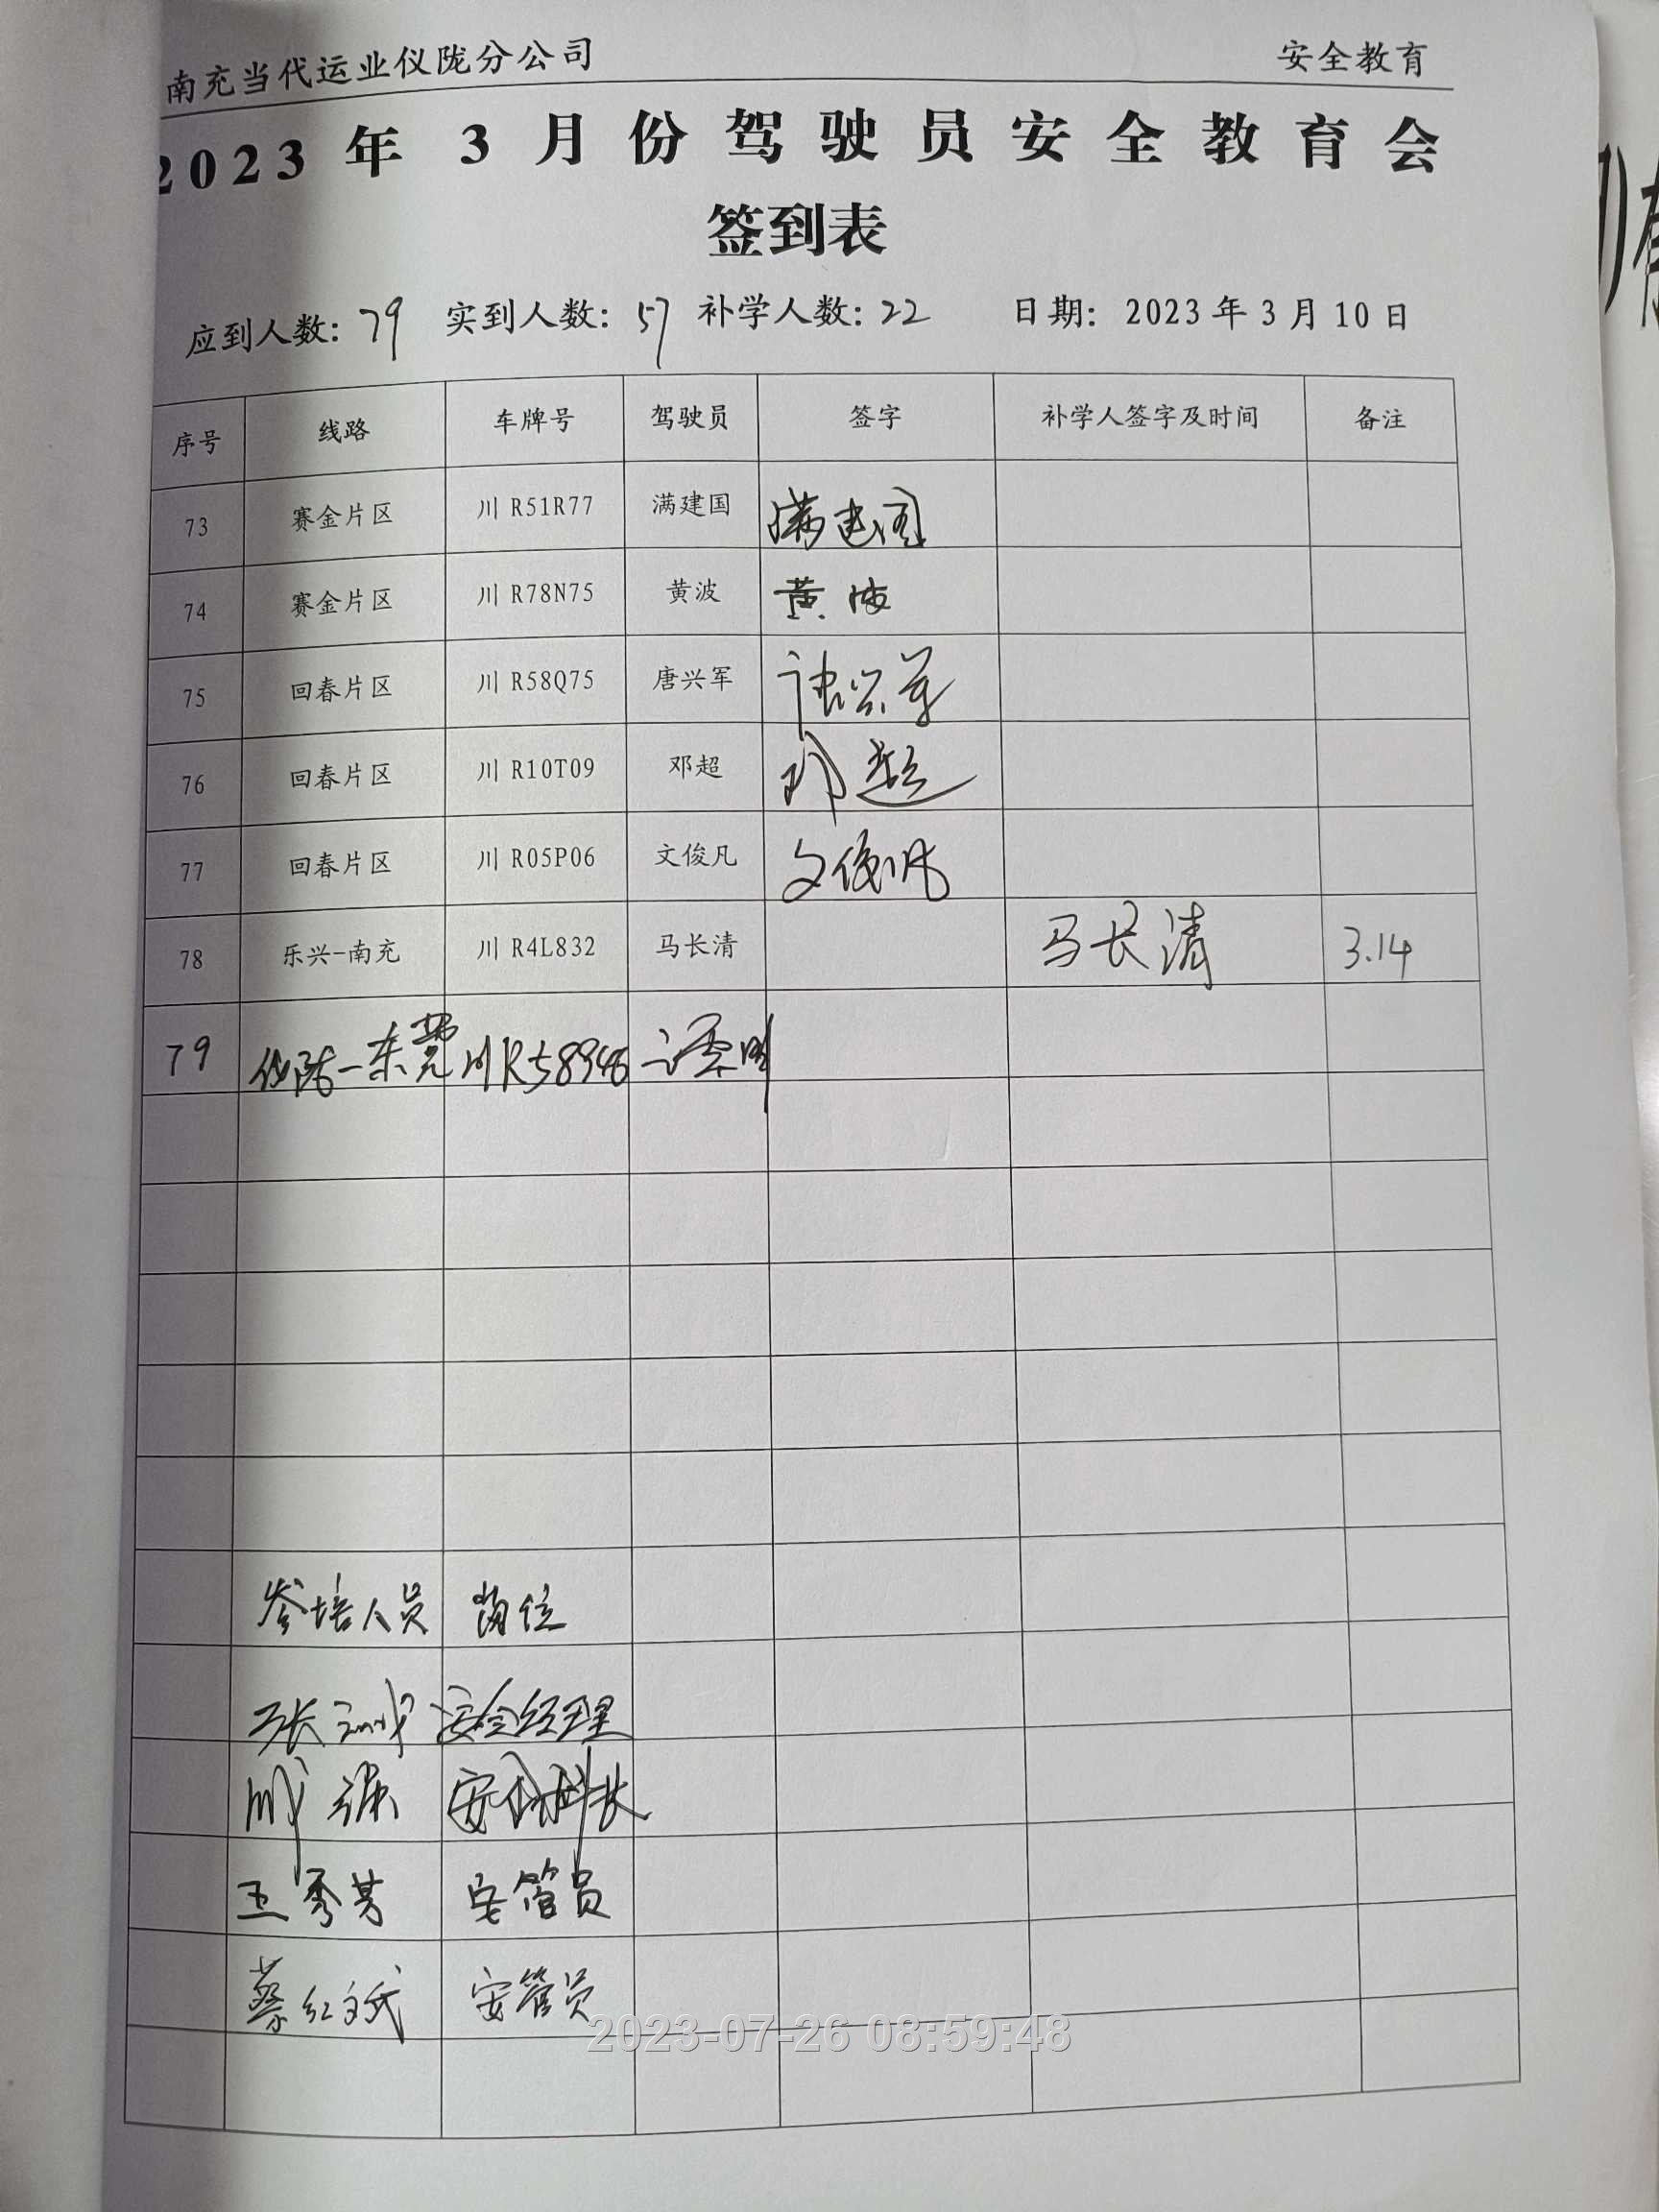 南充当代运业仪陇分公司 安全教育
2023年3月份驾驶员安全教育会
签到表
应到人数：79 实到人数：57 补学人数：22 日期：2023年3月10日
序号 线路 车牌号 驾驶员 签字 补学人签字及时间 备注
73 赛金片区 川R51R77 满建国 满建国
74 赛金片区 川R78N75 黄波 黄波
75 回春片区 川R58Q75 唐兴军 唐兴军
76 回春片区 川R10T09 邓超 邓超
77 回春片区 川R05P06 文俊凡 文俊凡
78 乐兴-南充 川R4L832 马长清 马长清 3.14
79 仪陇-东莞
参培人员 岗位
张 安全经理
强 安全科长
王秀芳 安管员
蔡红斌 安管员
2023-07-26 08:59:48